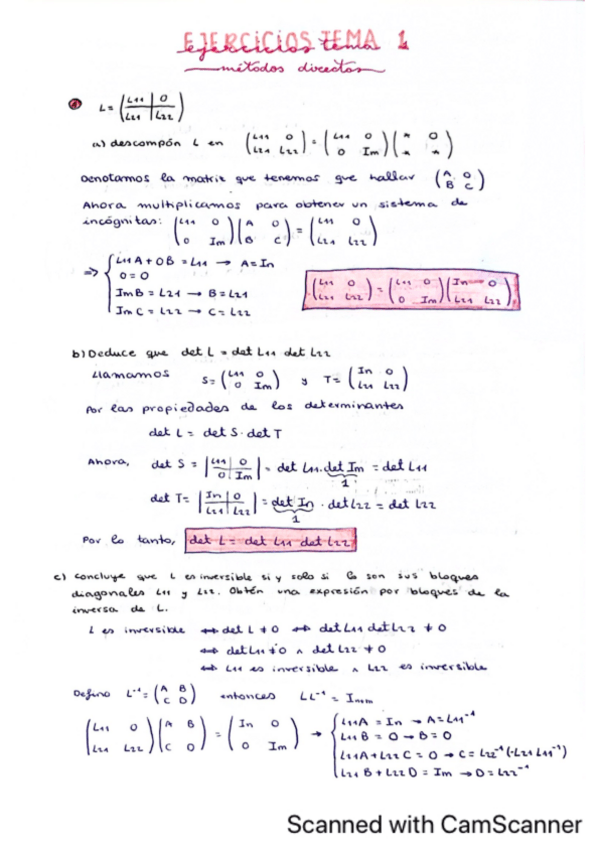 EJERCICIOS TEMA 1
métodos directos
① L = (L11 | 0 / L21 | L22)
a) descompón L en (L11 0 / L21 L22) = (L11 0 / 0 Im)(* 0 / * *)
Denotamos la matriz que tenemos que hallar (A 0 / B C)
Ahora multiplicamos para obtener un sistema de
incógnitas: (L11 0 / 0 Im)(A 0 / B C) = (L11 0 / L21 L22)
⇒ { L11A + 0B = L11 → A = In
0 = 0
ImB = L21 → B = L21
ImC = L22 → C = L22
(L11 0 / L21 L22) = (L11 0 / 0 Im)(In 0 / L21 L22)
b) Deduce que det L = det L11 det L22
Llamamos S = (L11 0 / 0 Im) y T = (In 0 / L21 L22)
Por las propiedades de los determinantes
det L = det S · det T
Ahora, det S = |L11 | 0 / 0 | Im| = det L11 · det Im = det L11
1
det T = |In | 0 / L21 | L22| = det In · det L22 = det L22
1
Por lo tanto, det L = det L11 det L22
c) concluye que L es inversible si y solo si lo son sus bloques
diagonales L11 y L22. Obtén una expresión por bloques de la
inversa de L.
L es inversible ↔ det L ≠ 0 ↔ det L11 det L22 ≠ 0
↔ det L11 ≠ 0 ∧ det L22 ≠ 0
↔ L11 es inversible ∧ L22 es inversible
Defino L⁻¹ = (A B / C D) entonces LL⁻¹ = In+m
(L11 0 / L21 L22)(A B / C D) = (In 0 / 0 Im) → { L11A = In → A = L11⁻¹
L11B = 0 → B = 0
L21A + L22C = 0 → C = L22⁻¹(-L21L11⁻¹)
L21B + L22D = Im → D = L22⁻¹
Scanned with CamScanner